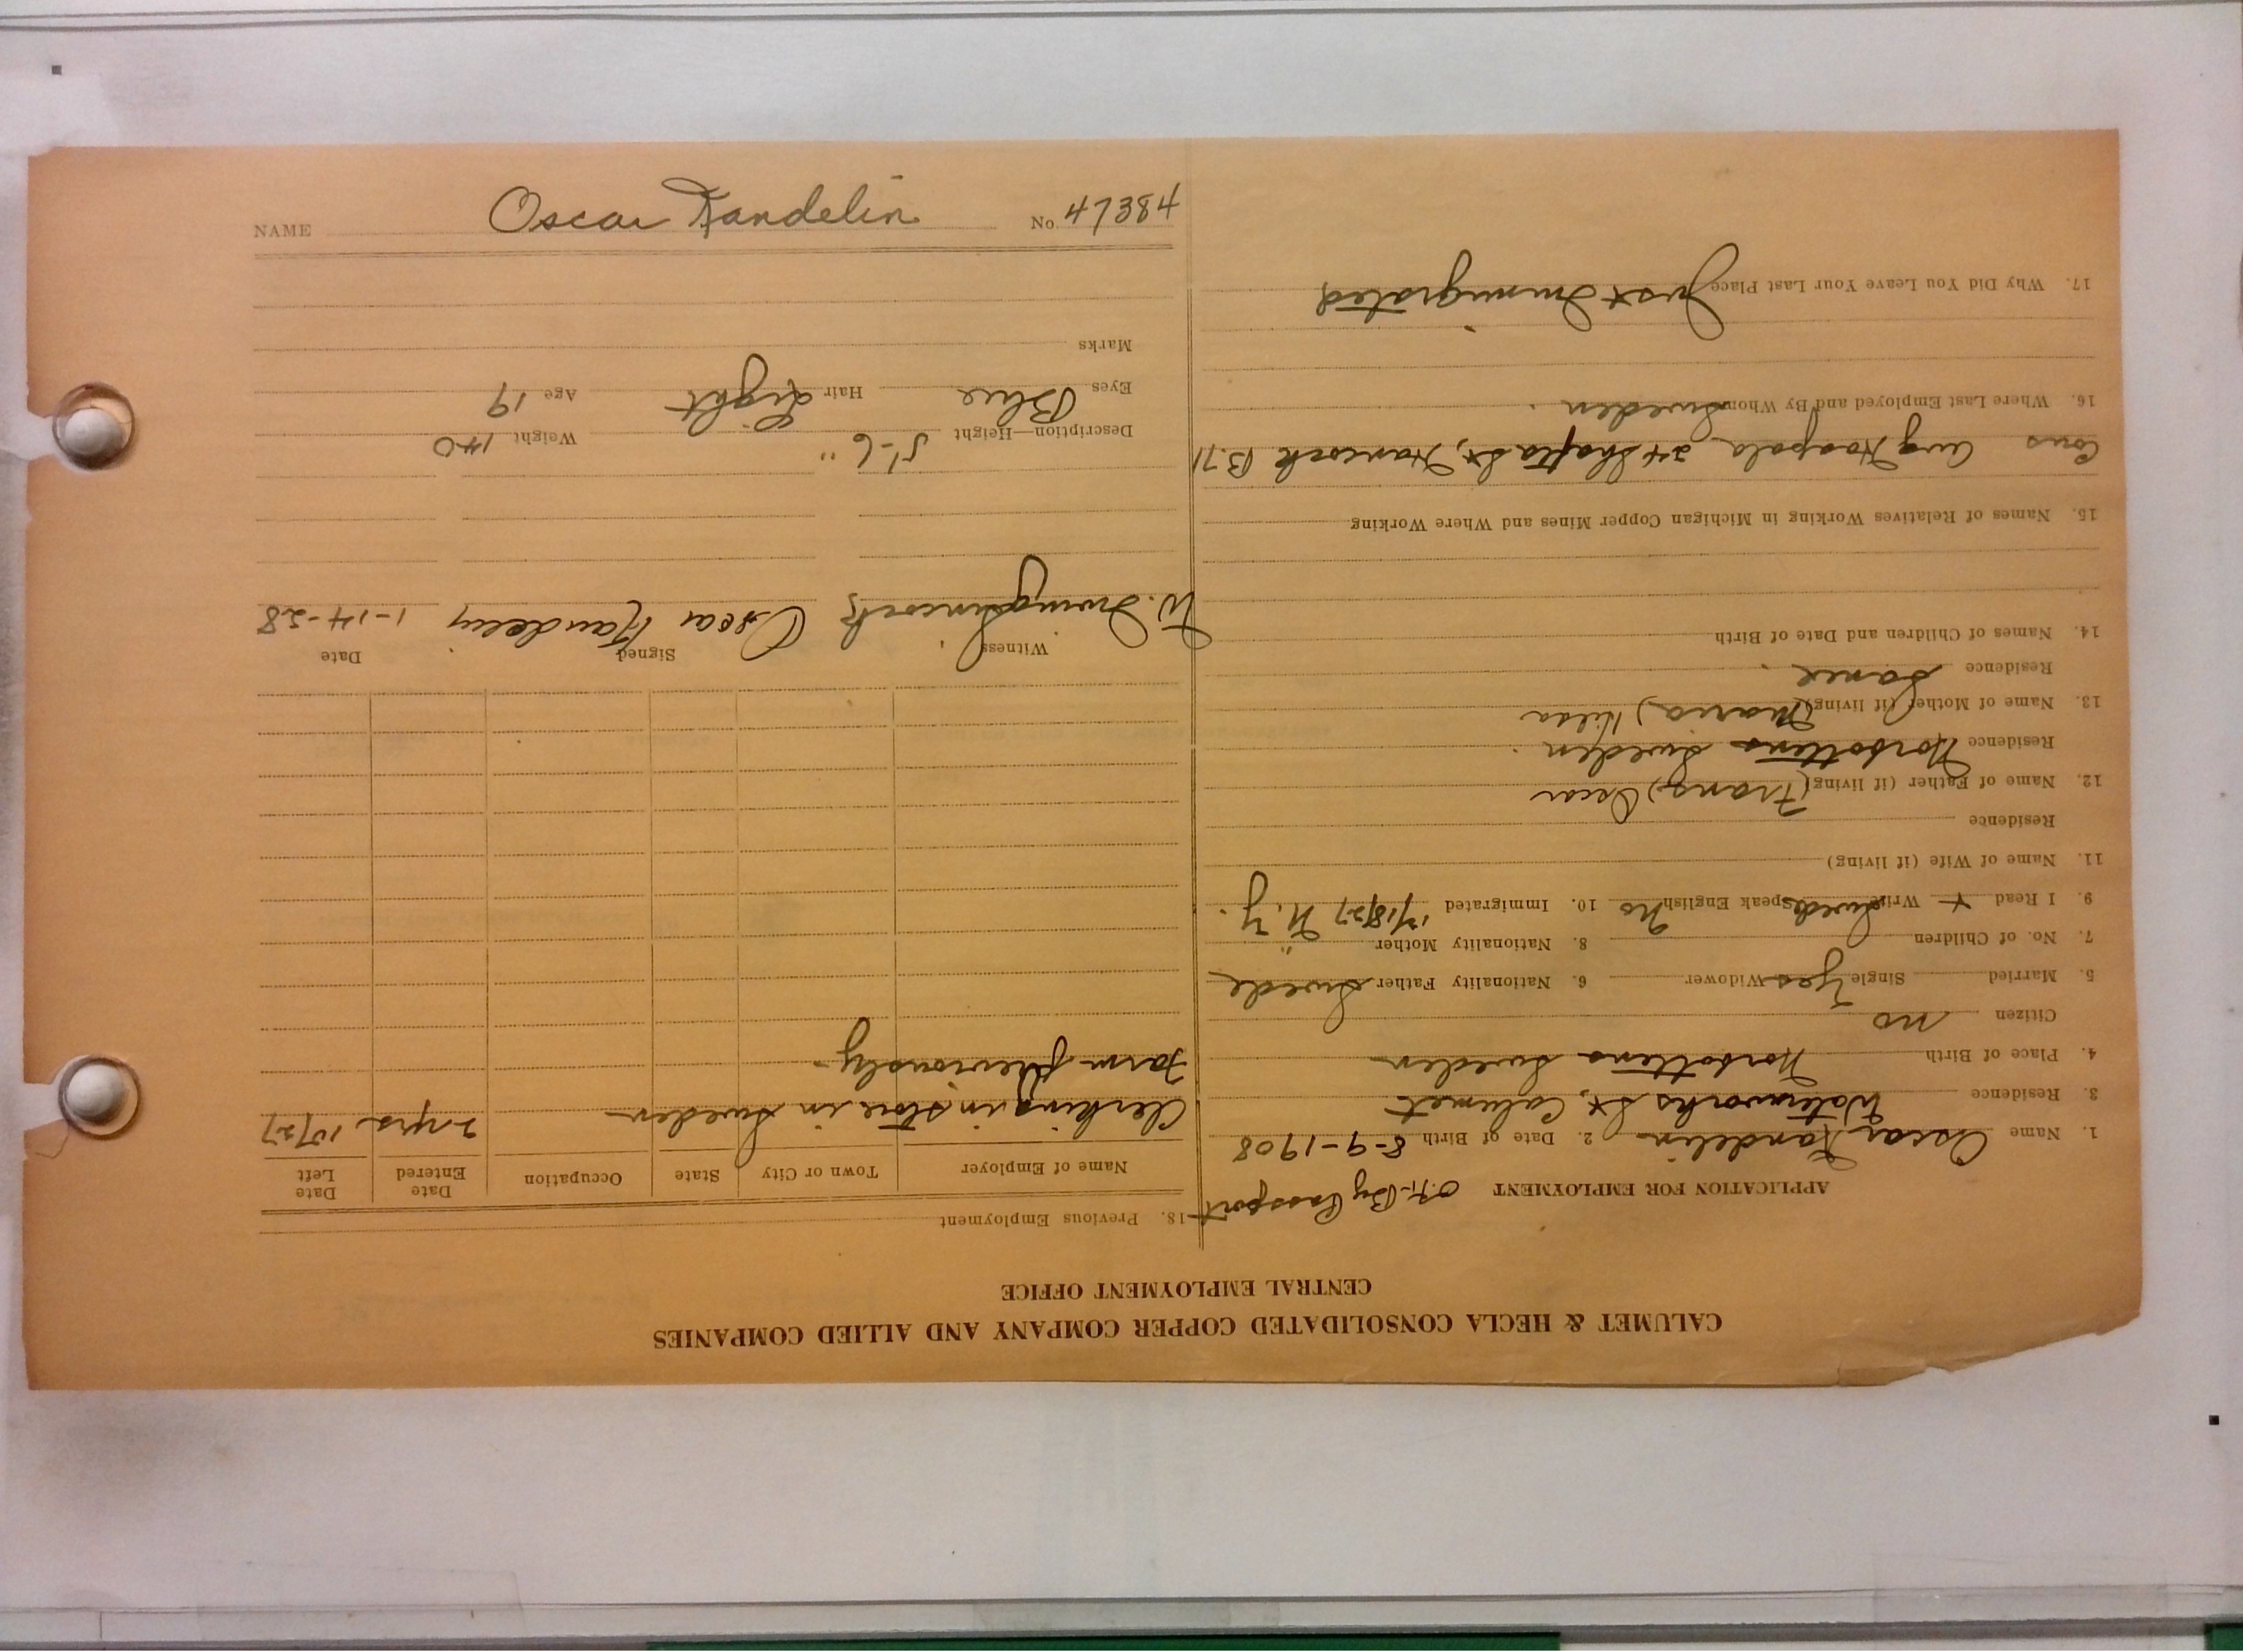 CALUMET & HECLA CONSOLIDATED COPPER COMPANY AND ALLIED COMPANIES
CENTRAL EMPLOYMENT OFFICE
APPLICATION FOR EMPLOYMENT O.K. By Passport
1. Name Oscar Kandelin 2. Date of Birth 8-9-1908
3. Residence Waterworks St, Calumet
4. Place of Birth Norbottens Sweden
Citizen no
5. Married Single Yes Widower 6. Nationality Father Swede
7. No. of Children 8. Nationality Mother "
9. I Read + Write Swede Speak English No 10. Immigrated 12/18/27 N.Y.
11. Name of Wife (if living)
Residence
12. Name of Father (if living) (Frans) Oscar
Residence Norbottens Sweden.
13. Name of Mother (if living) (Maria) Hilda
Residence Same.
14. Names of Children and Date of Birth
15. Names of Relatives Working in Michigan Copper Mines and Where Working
Cous Aug Haapala 24 Shafts St, Hancock B.71
16. Where Last Employed and By Whom Sweden.
17. Why Did You Leave Your Last Place Just Immigrated
18. Previous Employment
Name of Employer Town or City State Occupation Date Entered Date Left
Clerking in store in Sweden 2 yrs 10/27
Farm previously-
Witness Signed Date
Oscar Kandelin 1-14-28
Description—Height 5'-6" Weight 140
Eyes Blue Hair Light Age 19
Marks
NAME Oscar Kandelin No. 47384